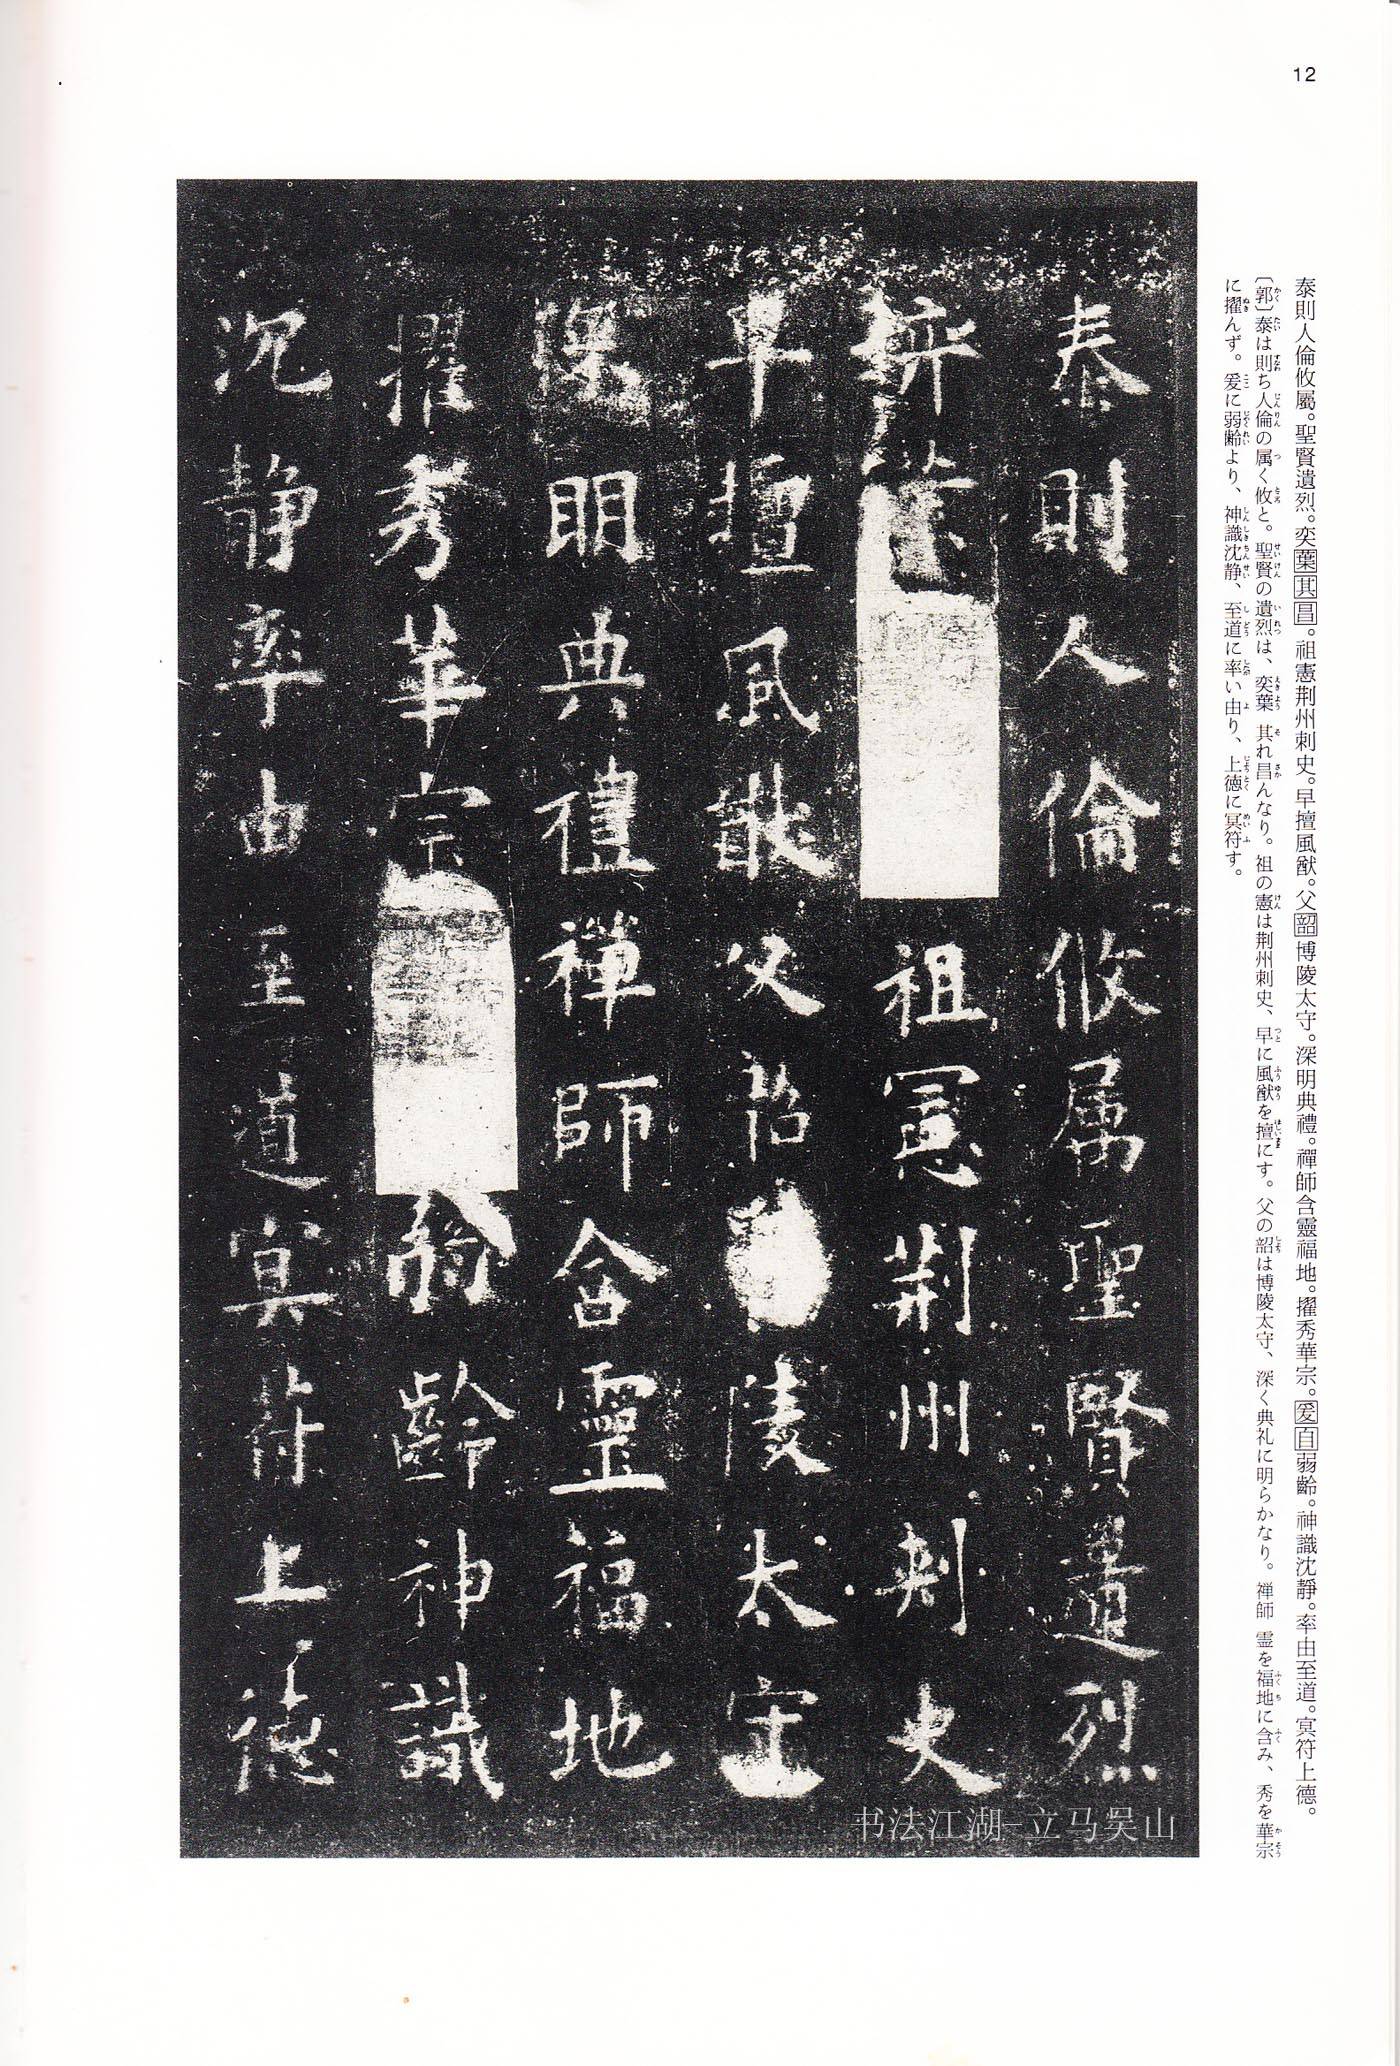 12
泰則人倫攸屬。聖賢遺烈。奕葉其昌。祖憲荆州刺史。早擅風猷。父韶博陵太守。深明典禮。禪師含靈福地。擢秀華宗。爰自弱齡。神識沈靜。率由至道。冥符上德。
〔郭〕泰は則ち人倫の属く攸と。聖賢の遺烈は、奕葉 其れ昌んなり。祖の憲は荆州刺史、早に風猷を擅にす。父の韶は博陵太守、深く典礼に明らかなり。禅師 霊を福地に含み、秀を華宗
に擢んず。爰に弱齢より、神識沈静、至道に率い由り、上徳に冥符す。
泰則人倫攸属聖賢遺烈
弈葉祖憲荆州刺史
早擅風猷父韶陵太守
深明典禮禪師含靈福地
擢秀華宗弱齡神識
沉静率由至道冥符上德
书法江湖-立马吴山